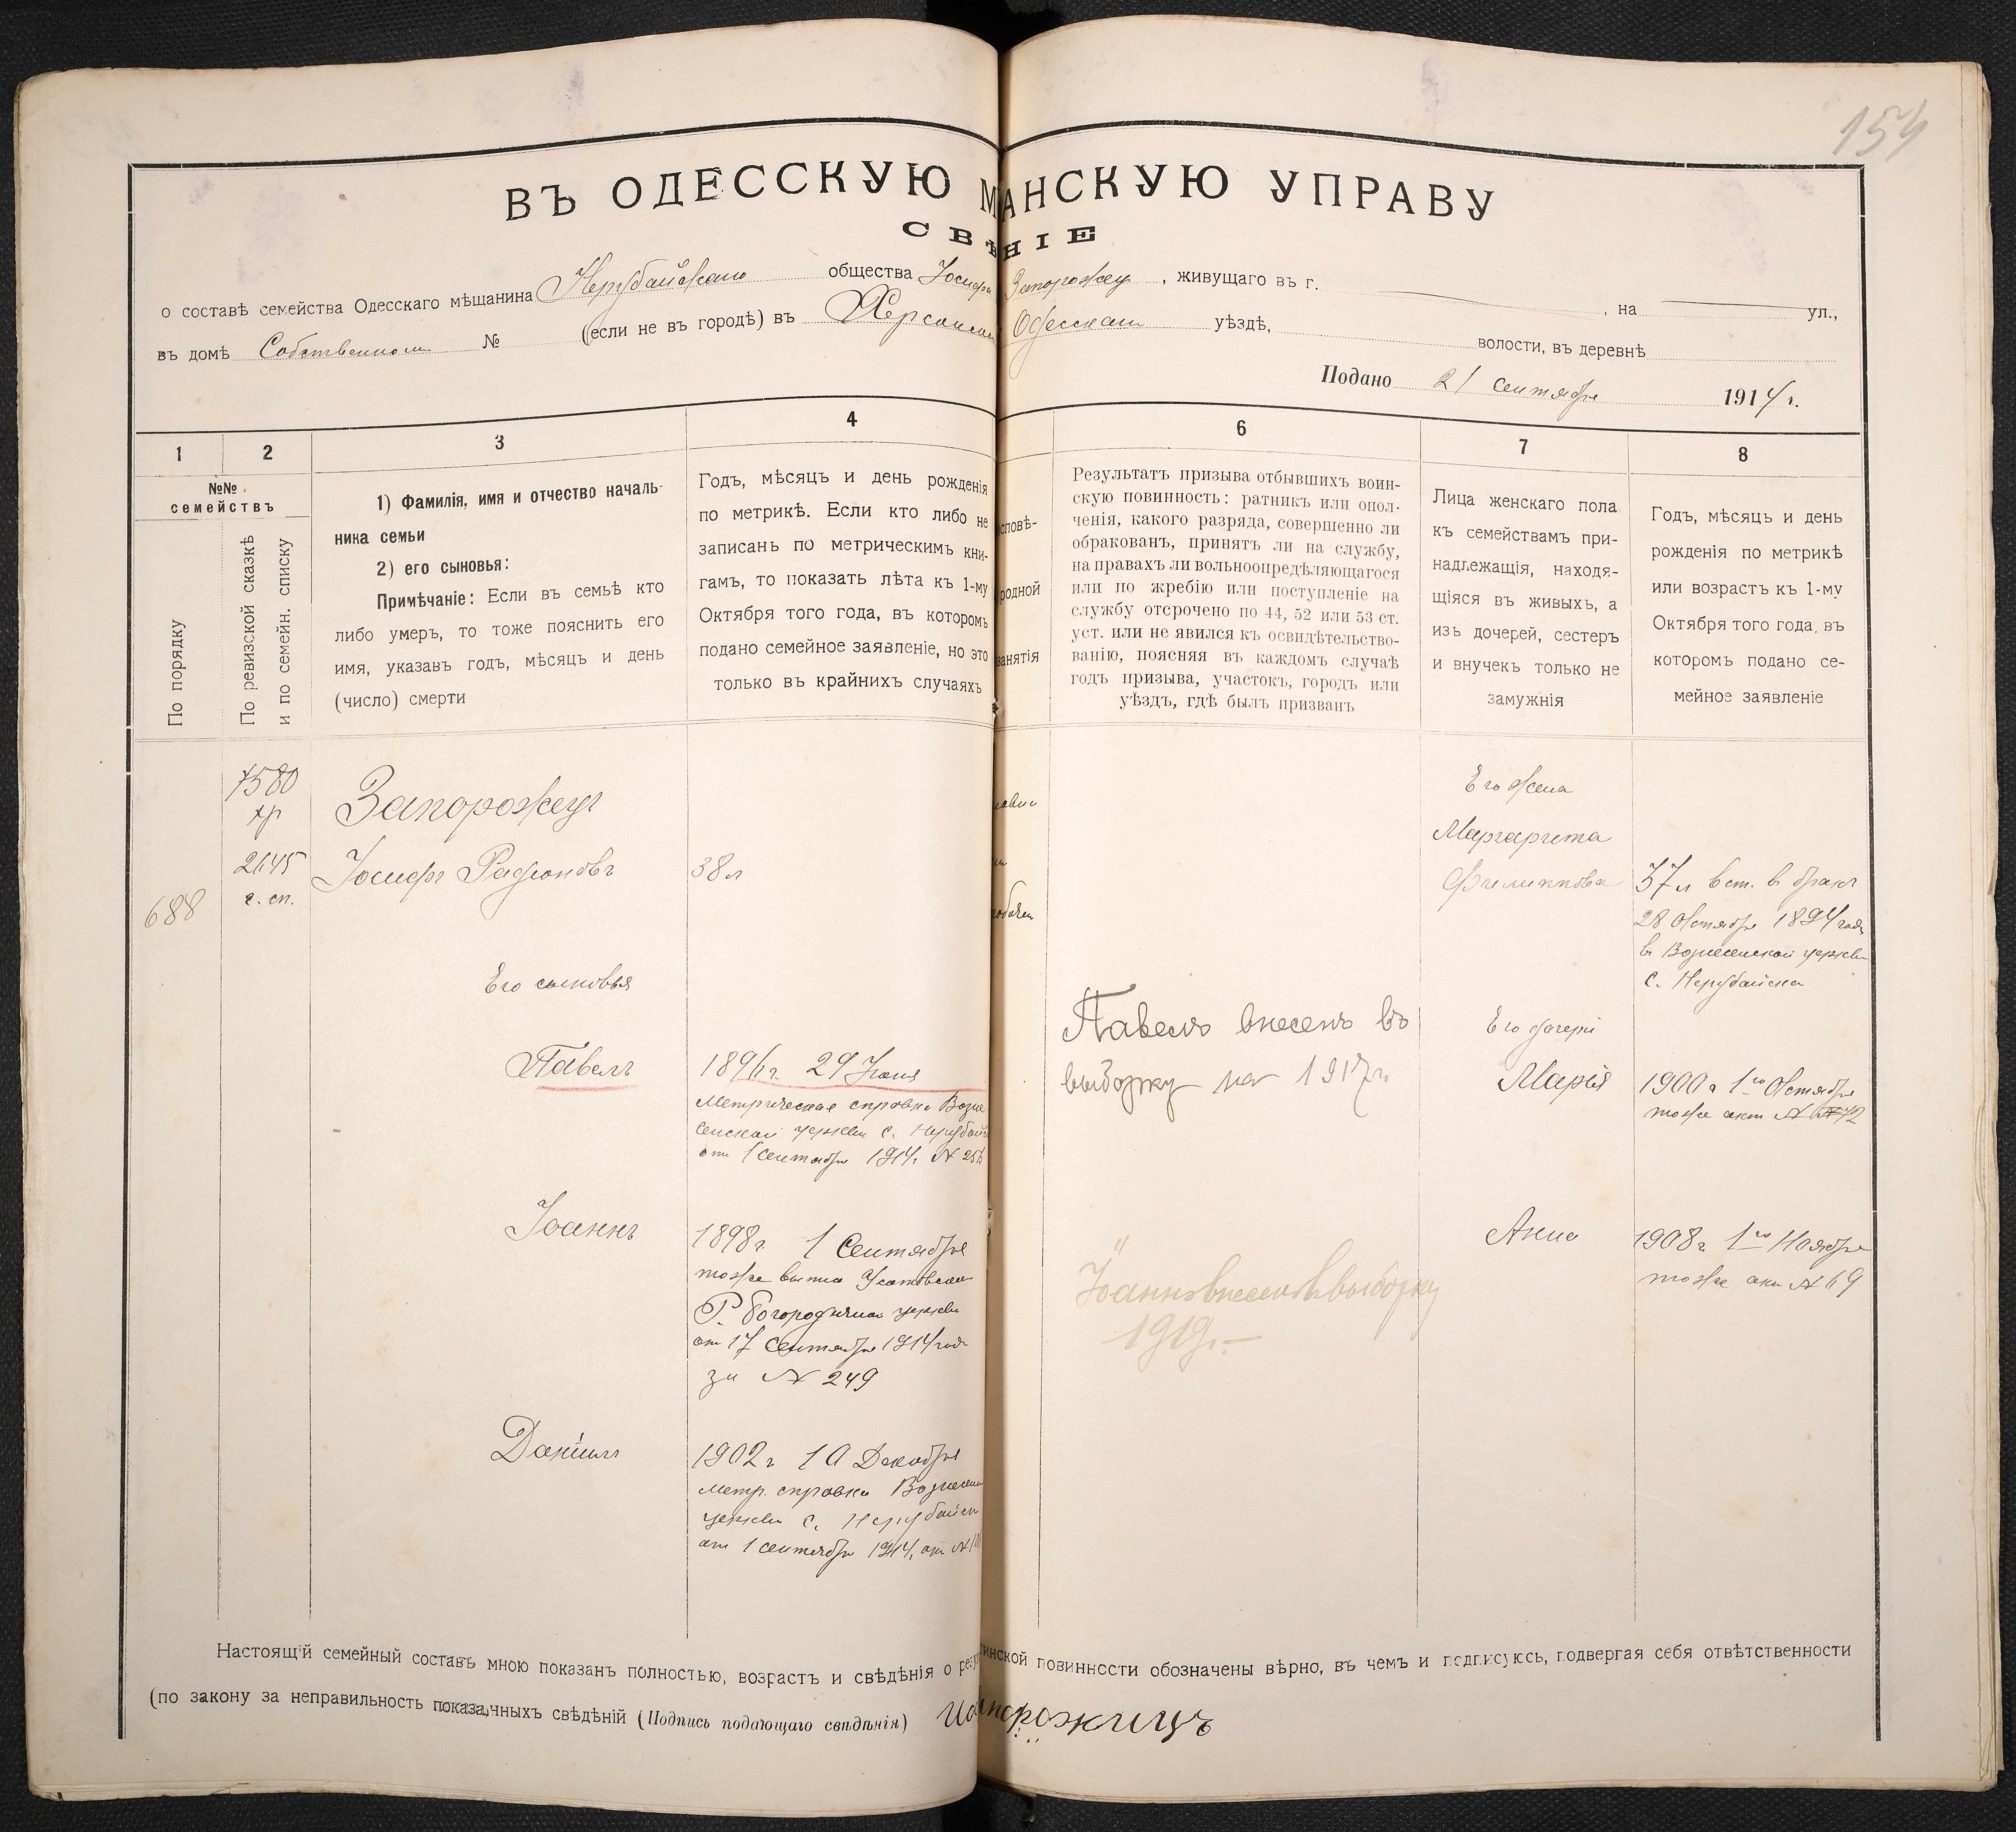 154
ВЪ ОДЕССКУЮ М АНСКУЮ УПРАВУ
СВѢ НІЕ
о составѣ семейства Одесскаго мѣщанина Нерубайскаго общества Іосифа Запорожец, живущаго въ г. , на ул.,
въ домѣ Собственном № (если не въ городѣ) въ Херсонской Одесскаго уѣздѣ, волости, въ деревнѣ
Подано 21 сентября 1914 г.
1 2 3 4 6 7 8
№№ семействъ
По порядку
По ревизской сказкѣ
и по семейн. списку
1) Фамилія, имя и отчество началь-
ника семьи
2) его сыновья:
Примѣчаніе: Если въ семьѣ кто
либо умеръ, то тоже пояснить его
имя, указавъ годъ, мѣсяцъ и день
(число) смерти
Годъ, мѣсяцъ и день рожденія
по метрикѣ. Если кто либо не
записанъ по метрическимъ кни-
гамъ, то показать лѣта къ 1-му
Октября того года, въ которомъ
подано семейное заявленіе, но это
только въ крайнихъ случаяхъ
сповѣ-
родной
занятія
Результатъ призыва отбывшихъ воин-
скую повинность: ратникъ или опол-
ченія, какого разряда, совершенно ли
обракованъ, принятъ ли на службу,
на правахъ ли вольноопредѣляющагося
или по жребію или поступленіе на
службу отсрочено по 44, 52 или 53 ст.
уст. или не явился къ освидѣтельство-
ванію, поясняя въ каждомъ случаѣ
годъ призыва, участокъ, городъ или
уѣздъ, гдѣ былъ призванъ
Лица женскаго пола
къ семействамъ при-
надлежащія, находя-
щіяся въ живыхъ, а
изъ дочерей, сестеръ
и внучекъ только не
замужнія
Годъ, мѣсяцъ и день
рожденія по метрикѣ
или возрастъ къ 1-му
Октября того года, въ
которомъ подано се-
мейное заявленіе
688
1580
2145
г. сп.
Запорожец
Іосифъ Радіоновъ
38 л
Его сыновья
Павелъ
1896 г. 29 Іюня
Метрическая справка Возне
сенской церкви с. Нерубайс
от 1 сентября 1914 г. №
Іоаннъ
1898 г. 1 Сентября
тоже выпис Усатовской
Р. Богородичной церкви
от 17 Сентября 1914 года
за № 249
Даніилъ
1902 г. 10 Декабря
метр. справка Вознесен
церкви с. Нерубайск
от 1 сентября 1914 г. акт №
Павелъ внесенъ въ
выборку на 1917 г.
Іоаннъ внесенъ въ выборку
1919 г.
Его жена
Маргарита
Филиппова
37 л вст. в бракъ
28 Октября 1894 года
в Вознесенской церкви
с. Нерубайска
Его дочери
Марія
1900 г 1го Октября
тоже акт № 72
Анна
1908 г. 1го Ноября
тоже акт № 69
Настоящій семейный составъ мною показанъ полностью, возрастъ и свѣдѣнія о резул инской повинности обозначены вѣрно, въ чемъ и подписуюсь, подвергая себя отвѣтственности
(по закону за неправильность показанныхъ свѣдѣній (Подпись подающаго свѣдѣнія) Иоапорожицъ